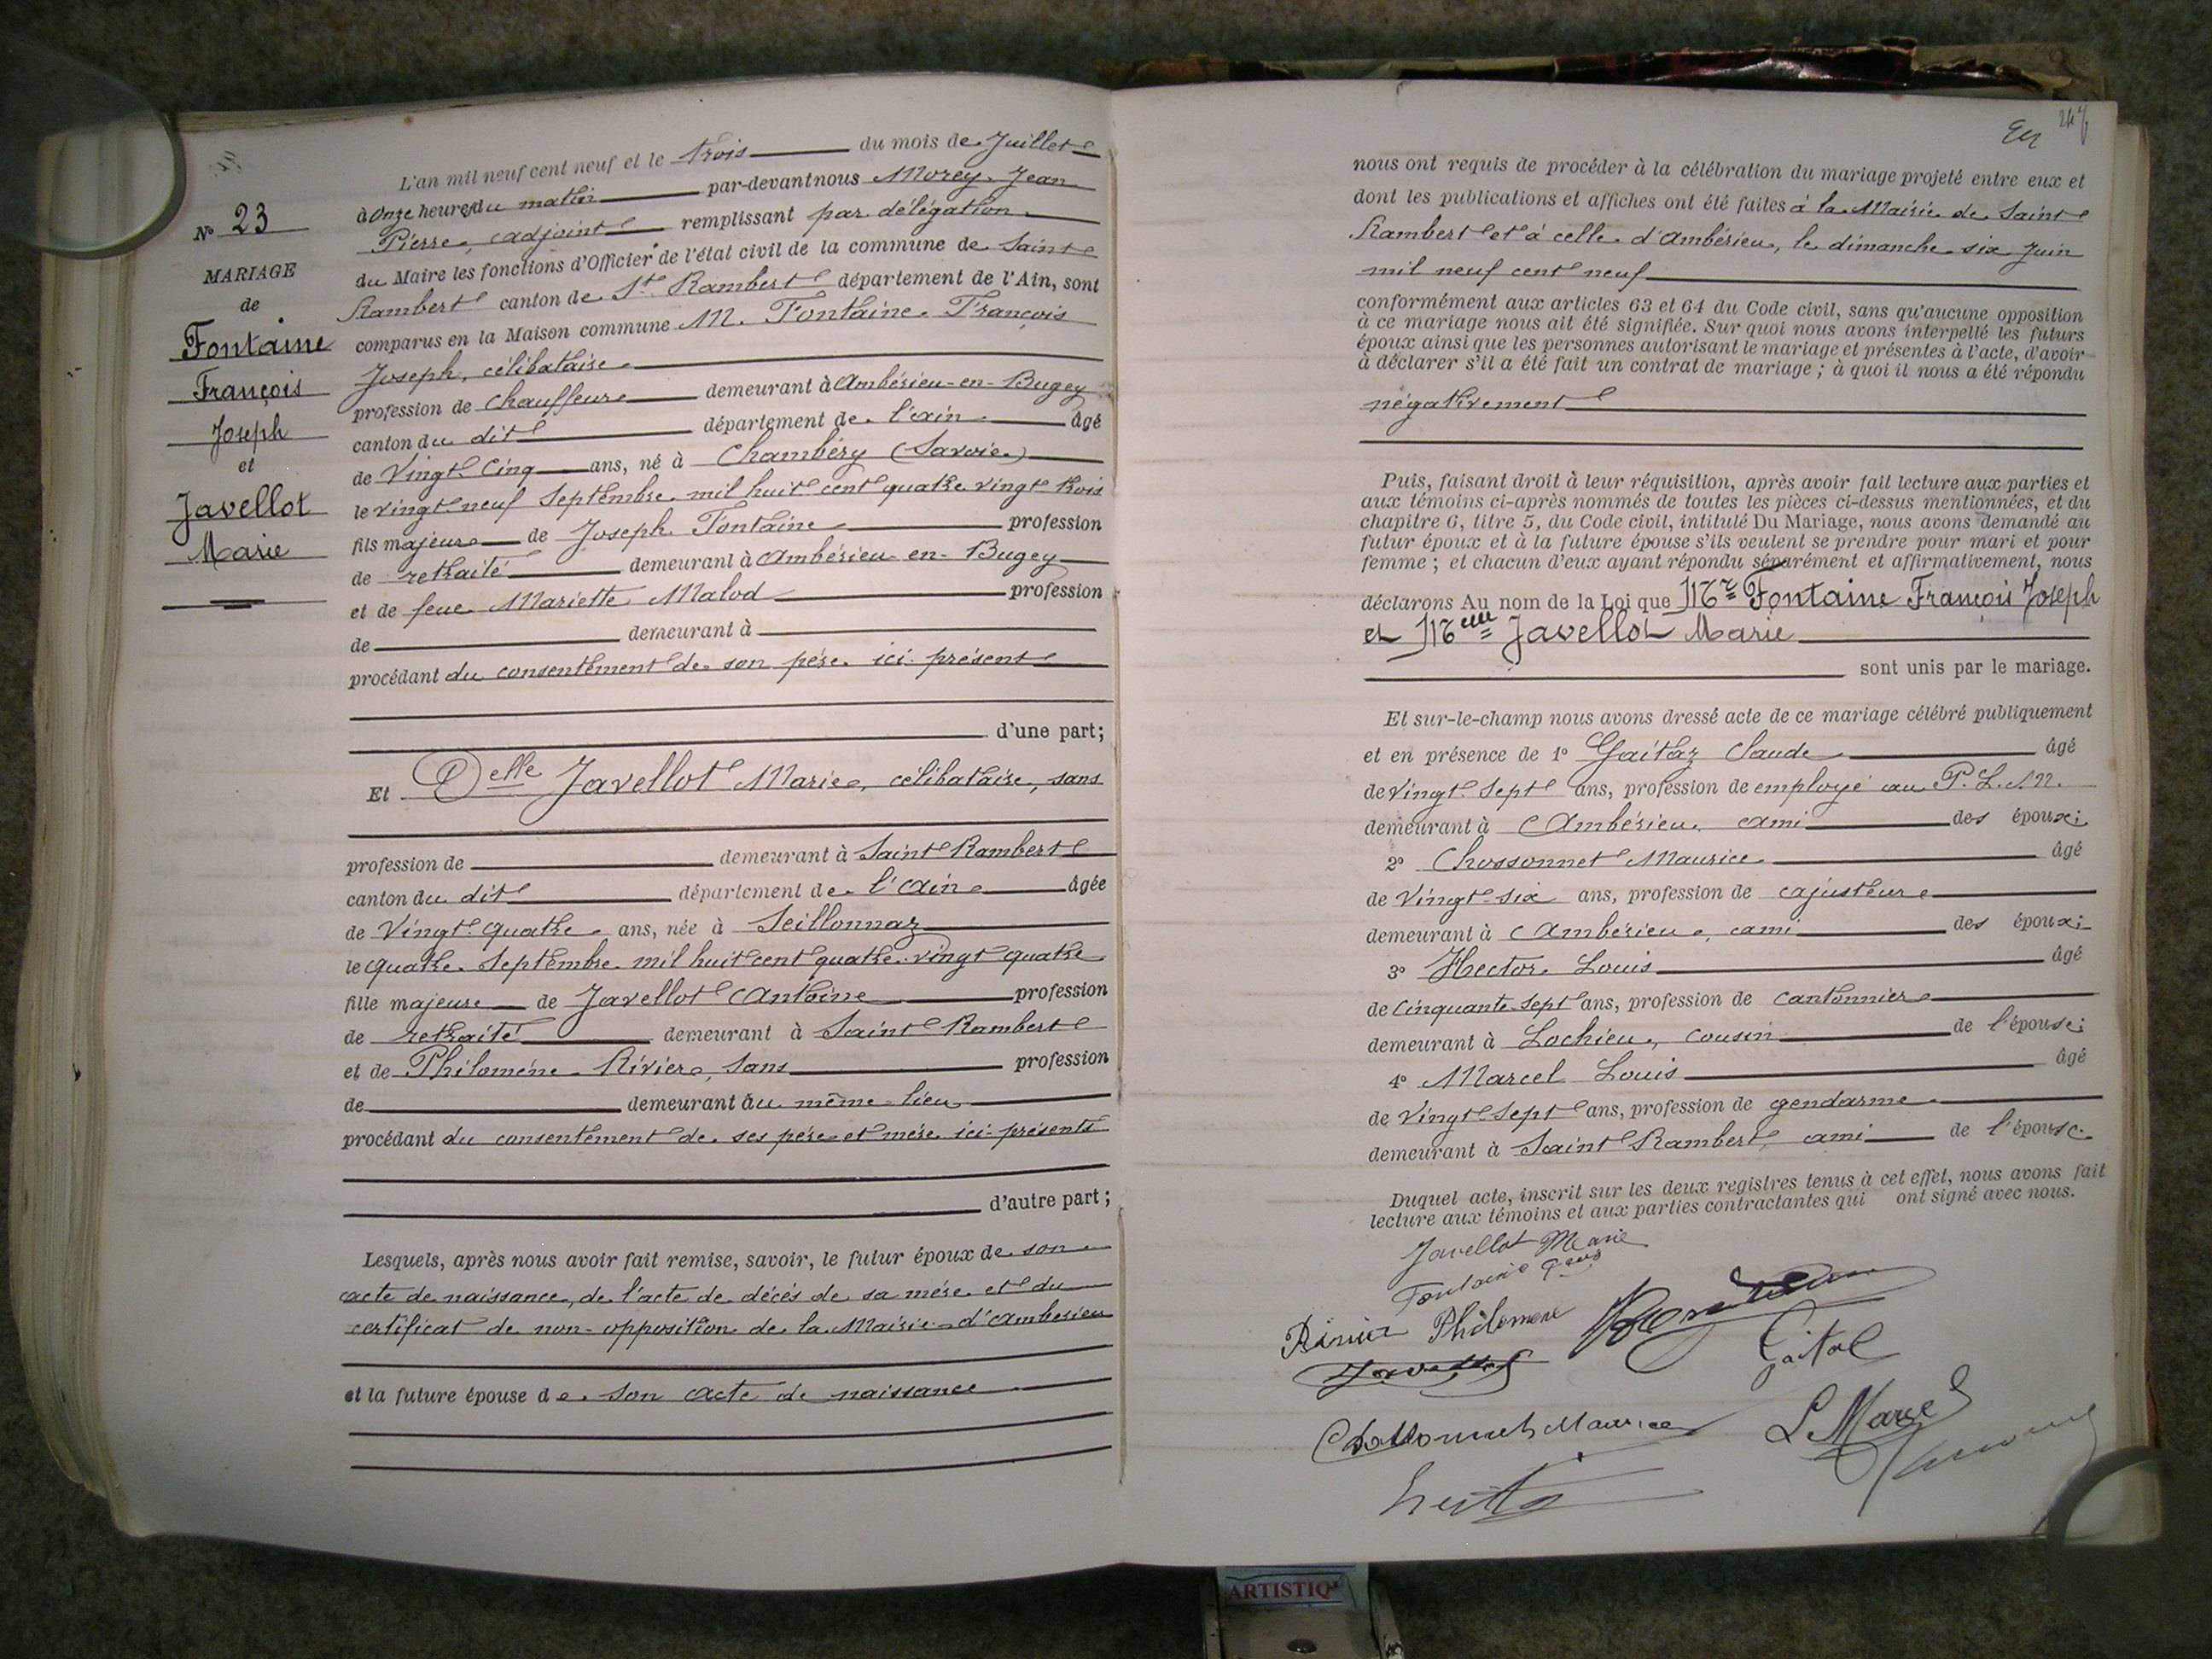 N° 23
MARIAGE
de
Fontaine
François
Joseph
et
Javellot
Marie
L'an mil neuf cent neuf et le trois du mois de Juillet
à onze heures du matin par-devant nous Morey Jean
Pierre, adjoint remplissant par délégation
du Maire les fonctions d'Officier de l'état civil de la commune de Saint
Rambert canton de St Rambert département de l'Ain, sont
comparus en la Maison commune M. Fontaine François
Joseph, célibataire
profession de chauffeur demeurant à Ambérieu-en-Bugey
canton du dit département de l'ain âgé
de Vingt Cinq ans, né à Chambéry (Savoie)
le vingt neuf Septembre mil huit cent quatre vingt trois
fils majeur de Joseph Fontaine profession
de retraité demeurant à Ambérieu-en-Bugey
et de feue Mariette Malod profession
de demeurant à
procédant du consentement de son père ici présent
d'une part;
Et Delle Javellot Marie, célibataire, sans
profession de demeurant à Saint Rambert
canton du dit département de l'ain âgée
de Vingt quatre ans, née à Seillonnaz
le quatre Septembre mil huit cent quatre-vingt quatre
fille majeure de Javellot Antoine profession
de retraité demeurant à Saint Rambert
et de Philomène Rivier, sans profession
de demeurant au même lieu
procédant du consentement de ses père et mère ici présents
d'autre part;
Lesquels, après nous avoir fait remise, savoir, le futur époux de son
acte de naissance, de l'acte de décès de sa mère et du
certificat de non-opposition de la Mairie d'Ambérieu
et la future épouse de son acte de naissance
nous ont requis de procéder à la célébration du mariage projeté entre eux et
dont les publications et affiches ont été faites à la Mairie de Saint
Rambert et à celle d'Ambérieu, le dimanche six Juin
mil neuf cent neuf
conformément aux articles 63 et 64 du Code civil, sans qu'aucune opposition
à ce mariage nous ait été signifiée. Sur quoi nous avons interpellé les futurs
époux ainsi que les personnes autorisant le mariage et présentes à l'acte, d'avoir
à déclarer s'il a été fait un contrat de mariage; à quoi il nous a été répondu
négativement
Puis, faisant droit à leur réquisition, après avoir fait lecture aux parties et
aux témoins ci-après nommés de toutes les pièces ci-dessus mentionnées, et du
chapitre 6, titre 5, du Code civil, intitulé Du Mariage, nous avons demandé au
futur époux et à la future épouse s'ils veulent se prendre pour mari et pour
femme; et chacun d'eux ayant répondu séparément et affirmativement, nous
déclarons Au nom de la Loi que Mr Fontaine François Joseph
et Melle Javellot Marie
sont unis par le mariage.
Et sur-le-champ nous avons dressé acte de ce mariage célébré publiquement
et en présence de 1° Gaitaz Claude âgé
de vingt-sept ans, profession de employé au P.L.M.
demeurant à Ambérieu, ami des époux;
2° Chossonnet Maurice âgé
de Vingt-six ans, profession de ajusteur
demeurant à Ambérieu, ami des époux;
3° Hector Louis âgé
de Cinquante-Sept ans, profession de cantonnier
demeurant à Lochieu, cousin de l'épouse;
4° Marcel Louis âgé
de Vingt-Sept ans, profession de gendarme
demeurant à Saint Rambert, ami de l'épouse
Duquel acte, inscrit sur les deux registres tenus à cet effet, nous avons fait
lecture aux témoins et aux parties contractantes qui ont signé avec nous.
Javellot Marie
Fontaine
Philomene
Chossonnet Maurice
L Marcel
ARTISTIQ